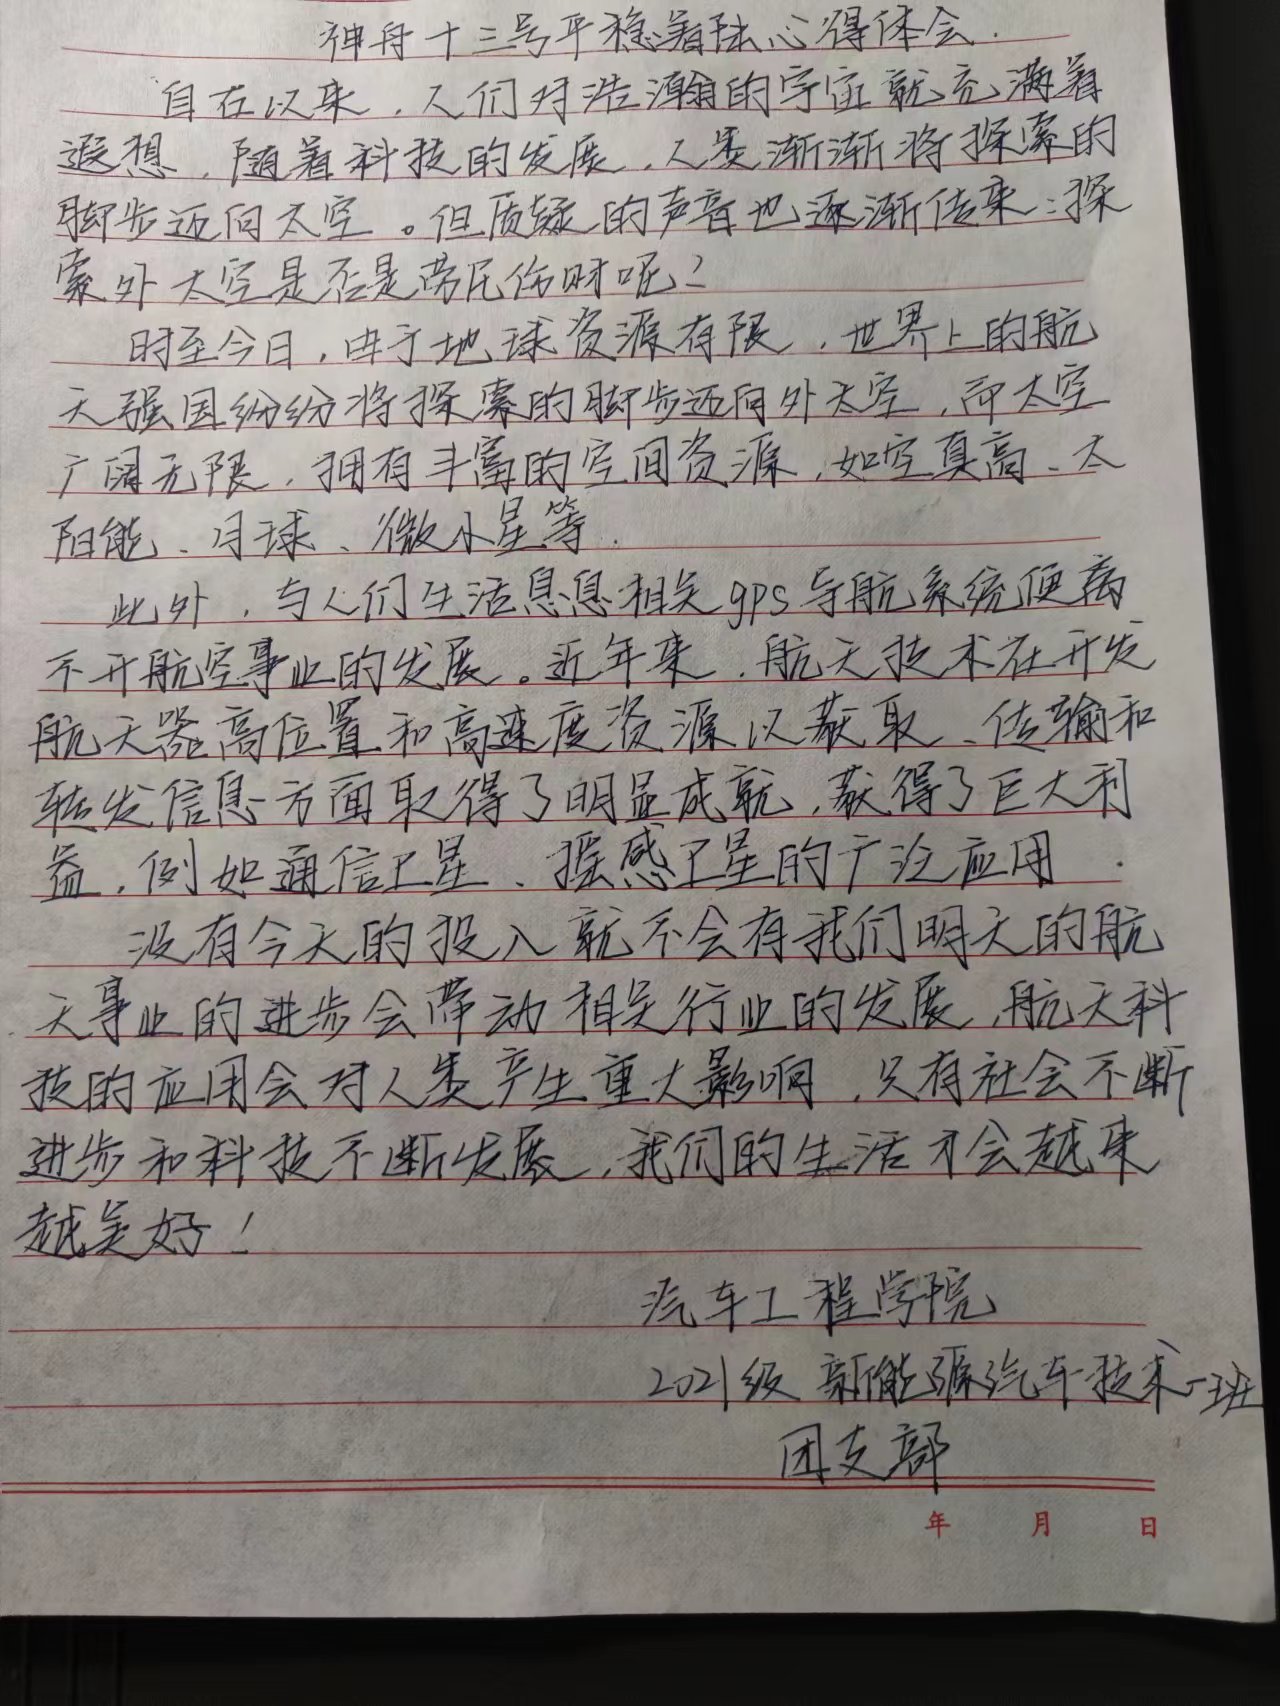 神舟十三号平稳着陆心得体会.
自在以来，人们对浩瀚的宇宙就充满着
遐想，随着科技的发展，人类渐渐将探索的
脚步迈向太空。但质疑的声音也逐渐传来：探
索外太空是否是劳民伤财呢？
时至今日，由于地球资源有限，世界上的航
天强国纷纷将探索的脚步迈向外太空，而太空
广阔无限，拥有丰富的空间资源，如空真高、太
阳能、月球、微小星等.
此外，与人们生活息息相关gps导航系统便离
不开航空事业的发展。近年来，航天技术在开发
航天器高位置和高速度资源以获取、传输和
转发信息方面取得了明显成就，获得了巨大利
益，例如通信卫星、摇感卫星的广泛应用.
没有今天的投入就不会有我们明天的航
天事业的进步会带动相关行业的发展，航天科
技的应用会对人类产生重大影响，只有社会不断
进步和科技不断发展，我们的生活才会越来
越美好！
汽车工程学院
2021级新能源汽车技术一班
团支部
年 月 日